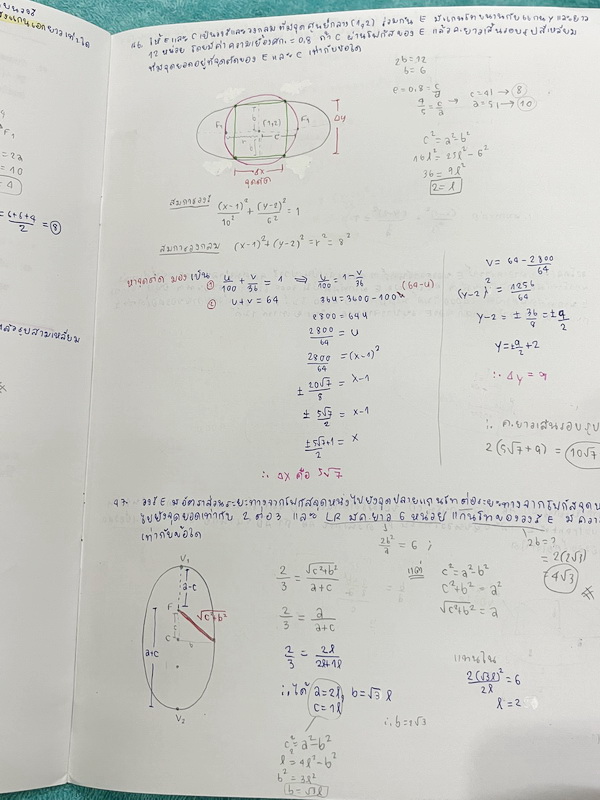 46. ให้ E และ C เป็นวงรีและวงกลม ที่มีจุดศูนย์กลาง (1,2) ร่วมกัน E มีแกนโทขนานกับแกน Y และยาว
12 หน่วย โดยมีค่าความเยื้องศก. = 0.8 ถ้า C ผ่านโฟกัสของ E แล้วความยาวเส้นรอบรูปสี่เหลี่ยม
ที่มีจุดยอดอยู่ที่จุดตัดของ E และ C เท่ากับข้อใด
2b = 12
b = 6
e = 0.8 = c/a
4/5 = c/a → c = 4l → 8
a = 5l → 10
c² = a² - b²
16l² = 25l² - 6²
36 = 9l²
2 = l
F₁
(1,2)
C
F₂
Δy
Δx
จุดตัด
สมการวงรี (x-1)²/10² + (y-2)²/6² = 1
สมการวงกลม (x-1)² + (y-2)² = r² = 8²
หาจุดตัด มองเป็น ① u/100 + v/36 = 1 ⇒ u/100 = 1 - v/36
② u + v = 64
(64-u)
36u = 3600 - 100v
2800 = 64u
2800/64 = u
2800/64 = (x-1)²
± 20√7/8 = x-1
± 5√7/2 = x-1
± 5√7/2 + 1 = x
∴ Δx คือ 5√7
v = 64 - 2800/64
(y-2)² = 1256/64
y-2 = ± 36/8 = ± 9/2
y = ± 9/2 + 2
∴ Δy = 9
∴ ค.ยาวเส้นรอบรูป
2(5√7+9) = 10√7
= 6+6+4/2 = 8
47. วงรี E มีอัตราส่วนระยะทางจากโฟกัสจุดหนึ่งไปยังจุดปลายแกนโทต่อระยะทางจากโฟกัสจุด
ไปยังจุดยอดเท่ากับ 2 ต่อ 3 และ LR มีค.ยาว 6 หน่วย แกนโทของวงรี E มีความ
เท่ากับข้อใด
2b²/a = 6 ;
2b = ?
= 2(2√3)
= 4√3
V₁
a-c
F
√c²+b²
C
b
a+c
V₂
2/3 = √c²+b²/a+c
2/3 = a/a+c
2/3 = 2l/2l+1l
∴ ได้ a = 2l, b = √3 l
c = 1l
c² = a² - b²
l² = 4l² - b²
b² = 3l²
b = √3l
แต่ c² = a² - b²
c² + b² = a²
√c²+b² = a
แทนใน
2(√3l)²/2l = 6
l = 2
∴ b = 2√3